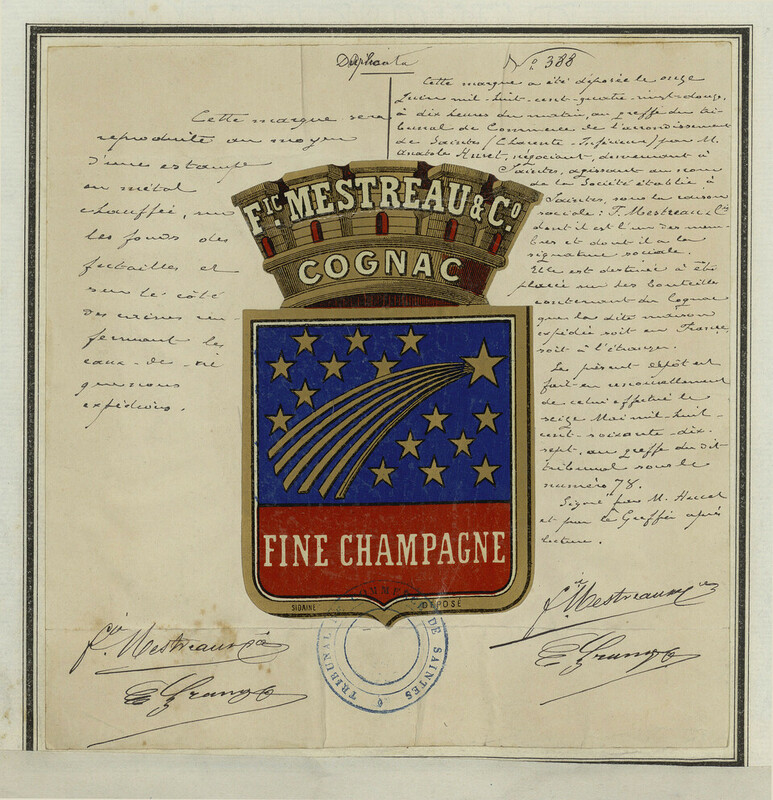 Duplicata
No 388
Cette marque sera
reproduite au moyen
d'une estampe
en métal
chauffée, sur
les fonds des
futailles et
sur le côté
des caisses ren-
fermant les
eaux-de-vie
que nous
expédions.
Cette marque a été déposée le onze
Juin mil-huit-cent-quatre-vingt-douze,
à dix heures du matin, au greffe du tri-
bunal de Commerce de l'arrondissement
de Saintes (Charente-Inférieure) par M.
Anatole Huret, négociant, demeurant à
Saintes, agissant au nom
de la Société établie à
Saintes, sous la raison
sociale: F. Mestreau & Cie
dont il est l'un des mem-
bres et dont il a la
signature sociale.
Elle est destinée à être
placée sur des bouteilles
contenant du Cognac
que la dite maison
expédie soit en France,
soit à l'étranger.
Le présent dépôt est
fait en renouvellement
de celui effectué le
seize Mai mil-huit-
cent-soixante-dix-
sept, au greffe du dit
tribunal sous le
numéro 78.
Signé par M. Huret
et par le Greffier après
lecture.
FIC. MESTREAU & CO.
COGNAC
FINE CHAMPAGNE
SIDAINE
DÉPOSÉ
TRIBUNAL DE COMMERCE DE SAINTES
Fic Mestreau & Cie
Fic Mestreau & Cie